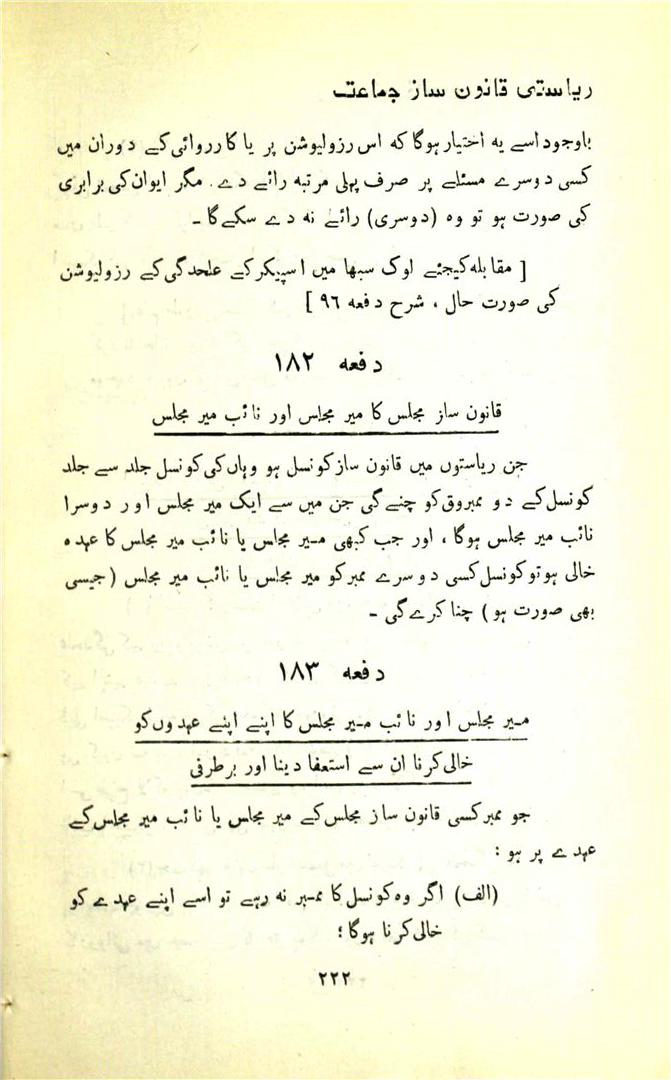 ریاستی قانون ساز جماعت
باوجود اسے یہ اختیار ہوگا کہ اس رزولیوشن پر یا کارروائی کے دوران میں
کسی دوسرے مسئلے پر صرف پہلی مرتبہ رائے دے۔ مگر ایوان کی برابری
کی صورت ہو تو وہ (دوسری) رائے نہ دے سکے گا ۔
[ مقابلہ کیجئے لوک سبھا میں اسپیکر کے علحدگی کے رزولیوشن
کی صورت حال ، شرح دفعہ ۹۶ ]
دفعہ ۱۸۲
قانون ساز مجلس کا میر مجلس اور نائب میر مجلس
جن ریاستوں میں قانون ساز کونسل ہو وہاں کی کونسل جلد سے جلد
کونسل کے دو ممبروں کو چنے گی جن میں سے ایک میر مجلس اور دوسرا
نائب میر مجلس ہوگا ، اور جب کبھی میر مجلس یا نائب میر مجلس کا عہدہ
خالی ہو تو کونسل کسی دوسرے ممبر کو میر مجلس یا نائب میر مجلس (جیسی
بھی صورت ہو) چنا کرے گی ۔
دفعہ ۱۸۳
میر مجلس اور نائب میر مجلس کا اپنے اپنے عہدوں کو
خالی کرنا ان سے استعفا دینا اور برطرفی
جو ممبر کسی قانون ساز مجلس کے میر مجلس یا نائب میر مجلس کے
عہدے پر ہو :
(الف) اگر وہ کونسل کا ممبر نہ رہے تو اسے اپنے عہدے کو
خالی کرنا ہوگا ؛
۲۲۲